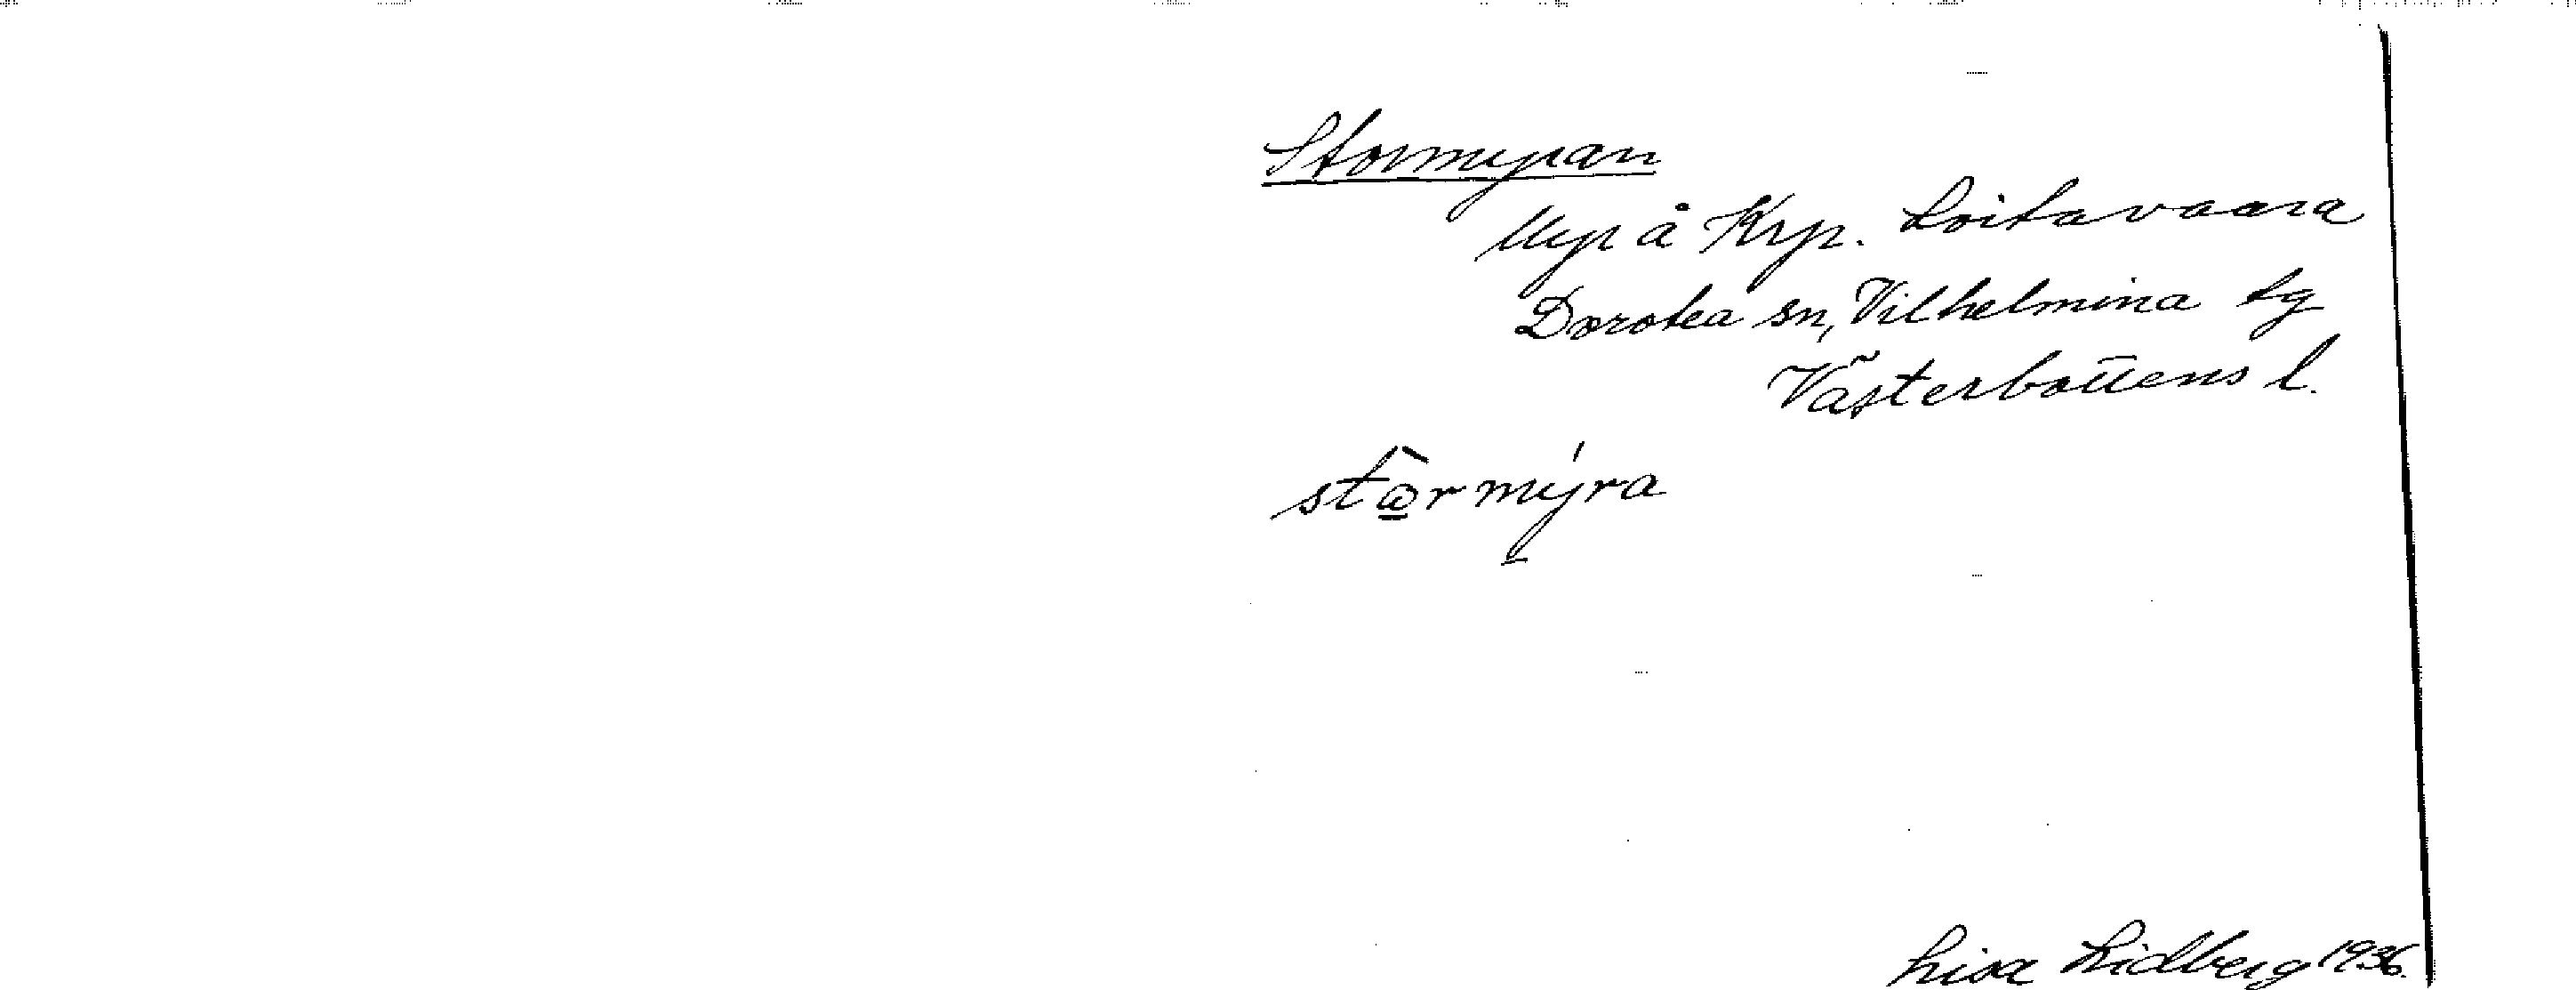 Stormyran
Myr å Krp. Loitavaara
Dorotea sn, Vilhelmina tg
Västerbottens l.
stǫ̀rmýra
Lisa Lidberg 1936.